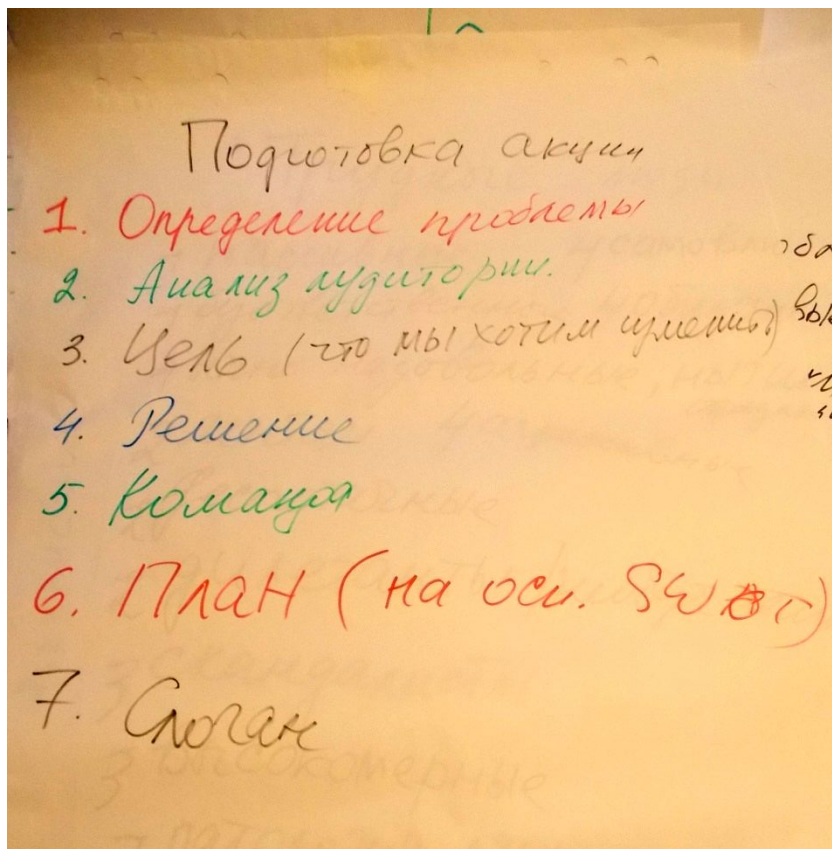 Подготовка акции
1. Определение проблемы
2. Анализ аудитории.
3. Цель (что мы хотим изменить)
4. Решение
5. Команда
6. План (на осн. SWOT)
7. Слоган